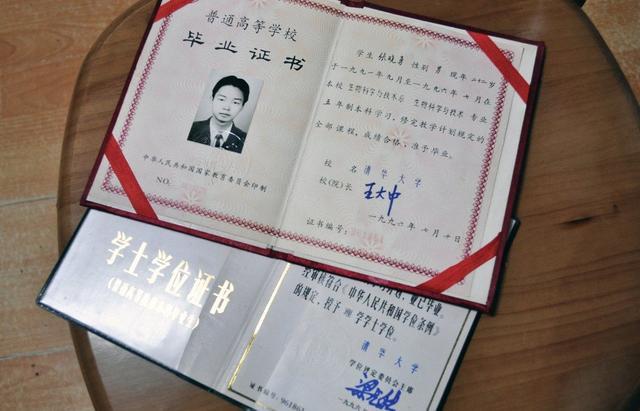 普通高等学校
毕业证书
中华人民共和国国家教育委员会印制
NO.
学生 张晓勇 性别 男 现年 二十二岁
于一九九一年九月至一九九六年七月在
本校 生物科学与技术系 生物科学与技术 专业
五年制本科学习，修完教学计划规定的
全部课程，成绩合格，准予毕业。
校名 清华大学
校(院)长 王大中
一九九六年七月十日
证书编号:
学士学位证书
经审核符合《中华人民共和国学位条例》
的规定，授予 理 学学士学位。
清华大学
学位评定委员会主席
一九九六年
证书编号